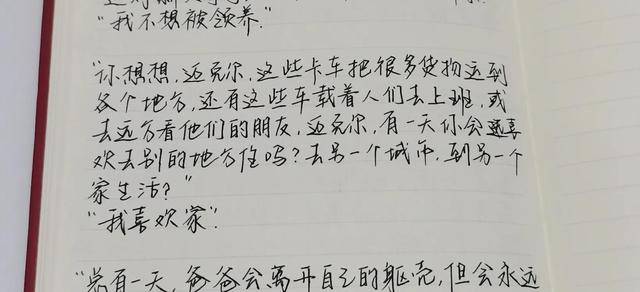 "我不想被领养."
"你想想,迈克尔,这些卡车把很多货物运到
各个地方,还有这些车载着人们去上班,或
去远方看他们的朋友,迈克尔,有一天你会喜
欢去别的地方住吗?去另一个城市,到另一个
家生活?"
"我喜欢家".
"总有一天,爸爸会离开自己的躯壳,但会永远